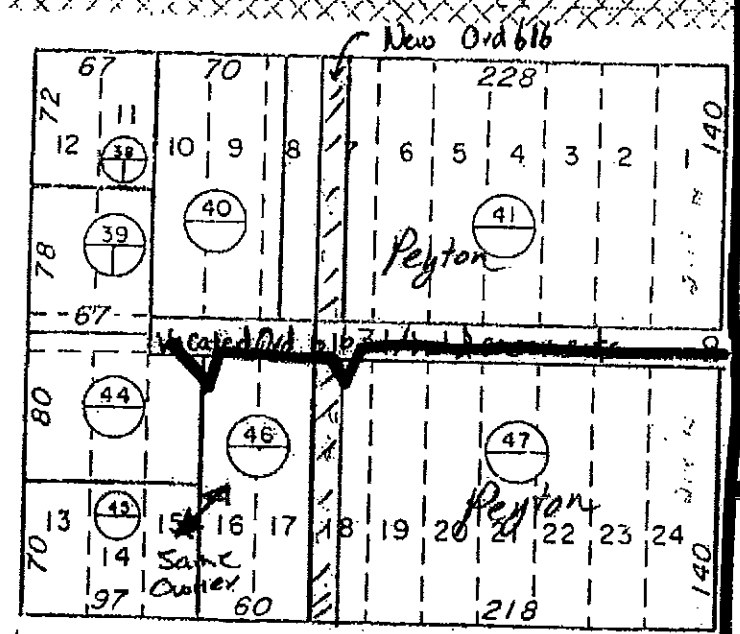 New Ord 616
67 70 228
72 11 140
12 38 10 9 8 7 6 5 4 3 2
40 41
39
78 Peyton
67
Vacated Ord
44
80 46 47
Peyton
13 45 15 16 17 18 19 20 21 22 23 24
14 Same
70 Owner 140
97 60 218